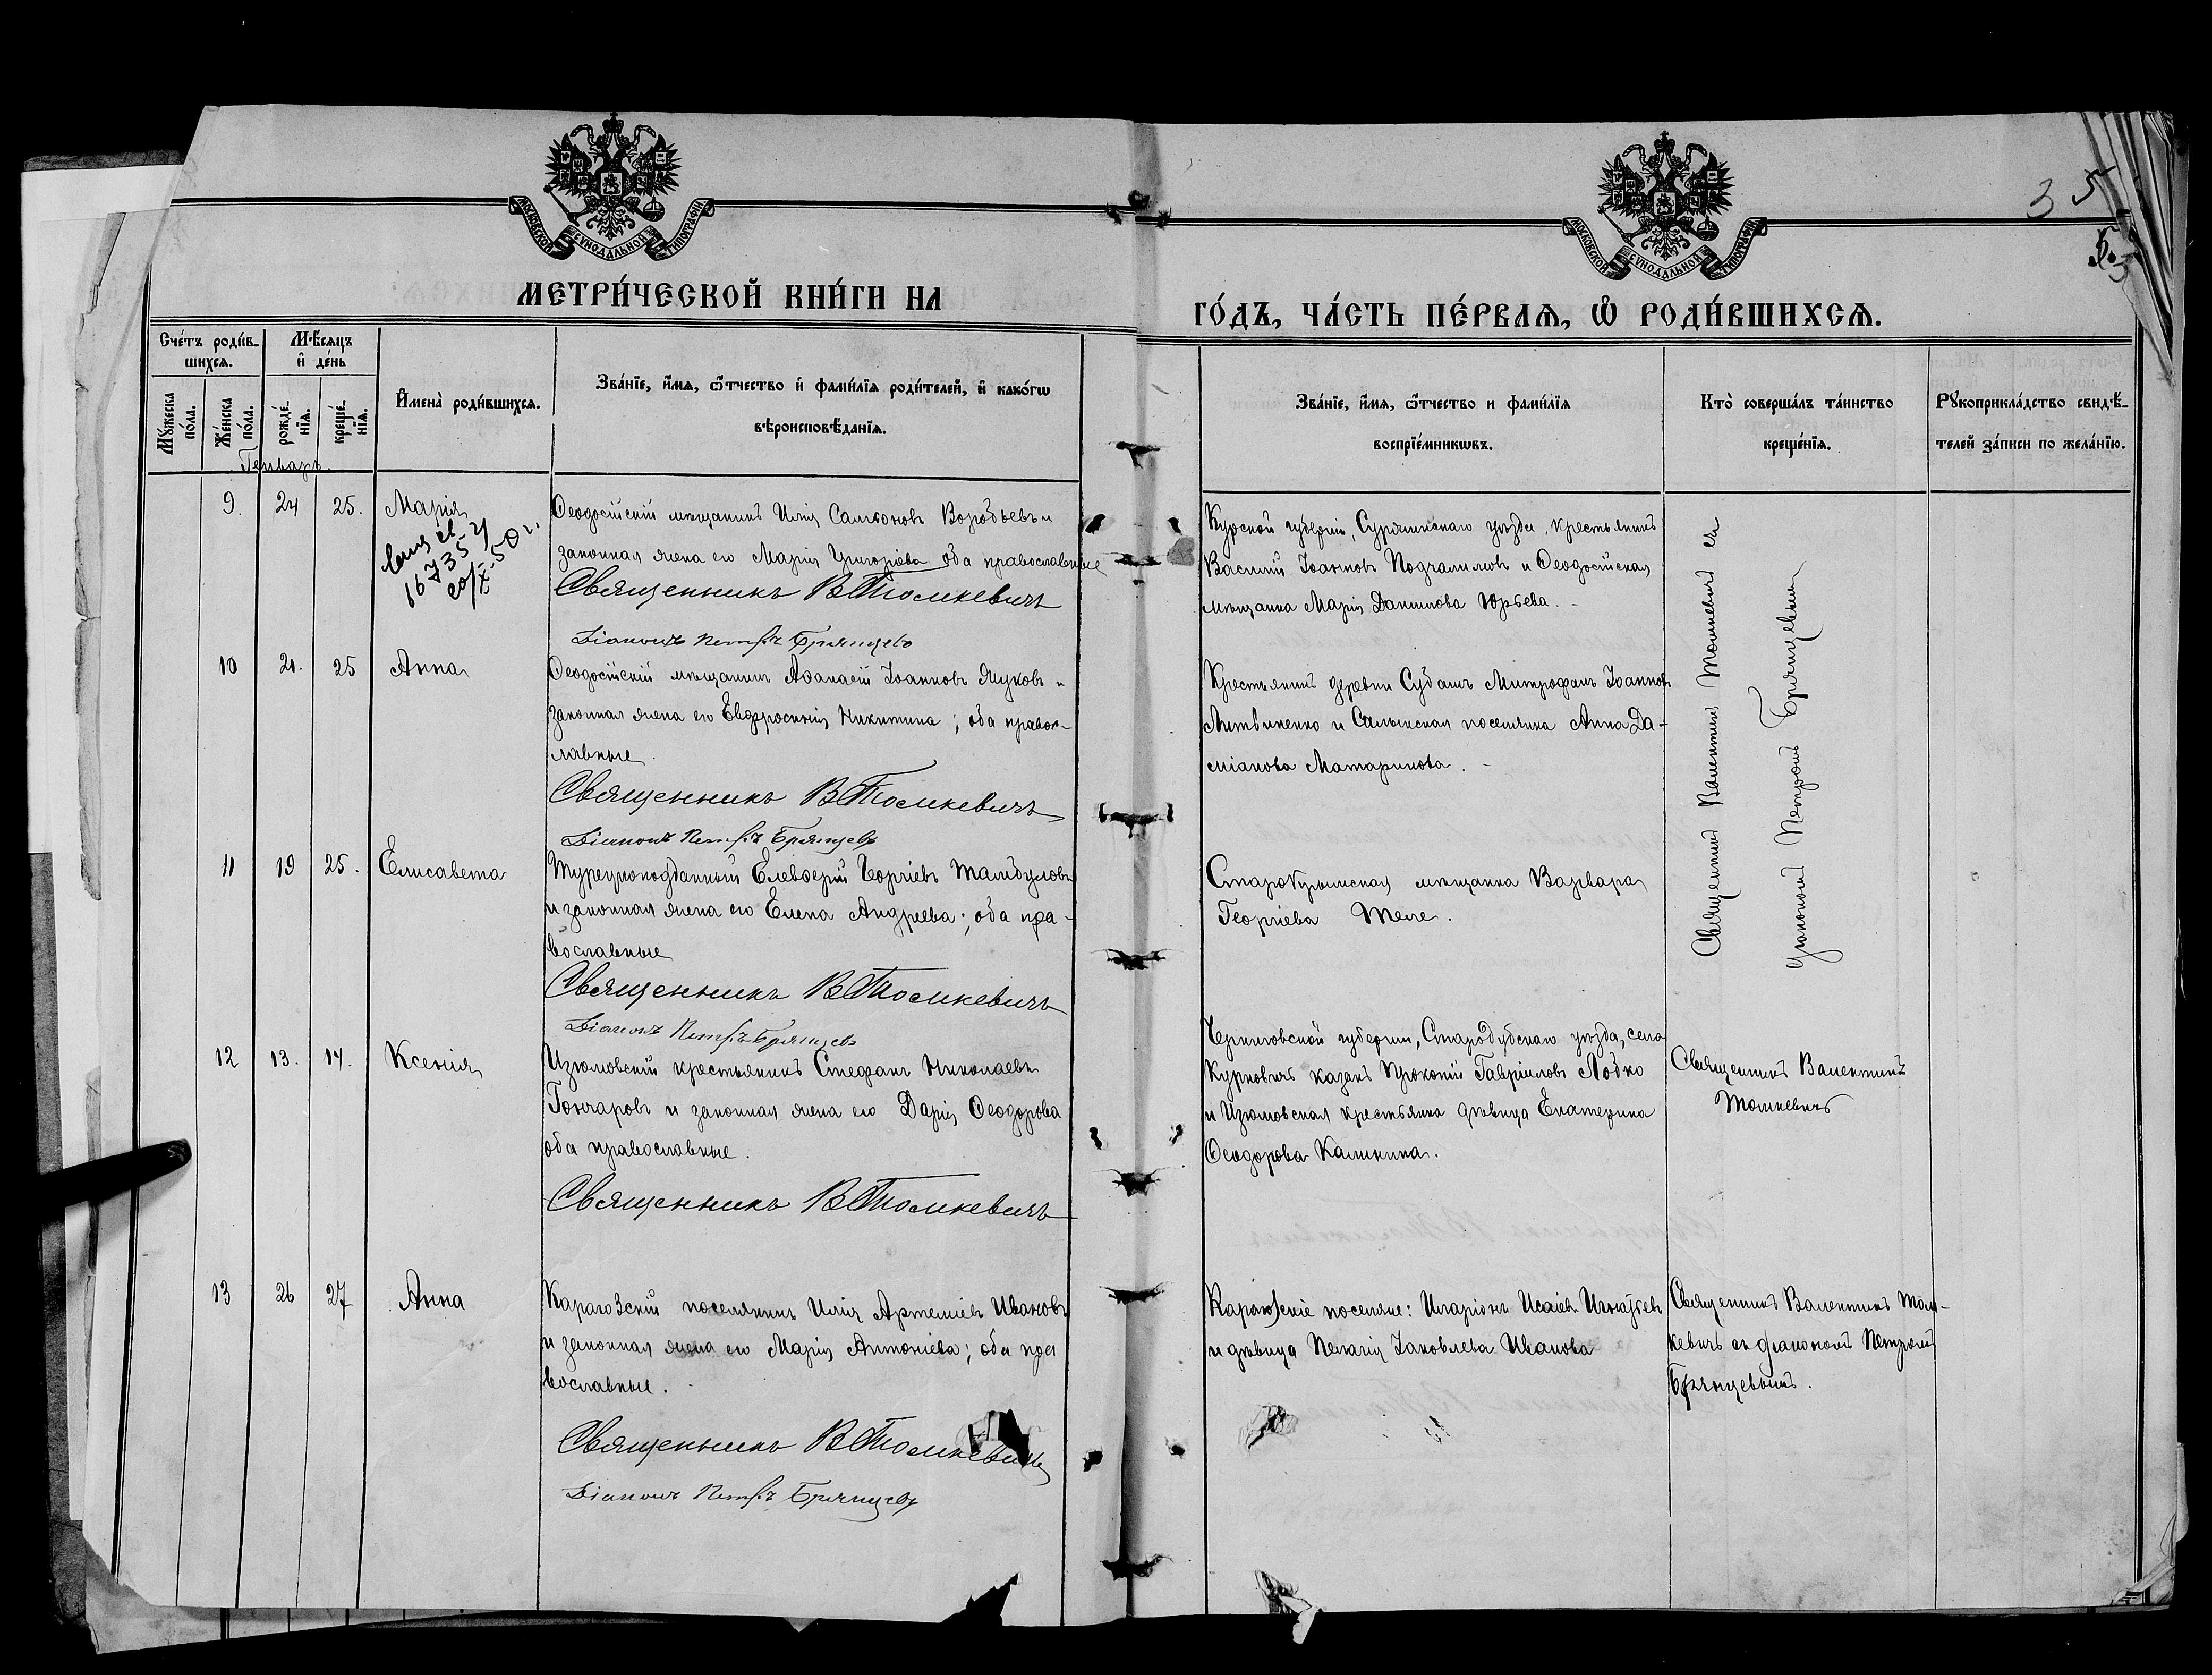 МОСКОВСКОЙ СѴНОДАЛЬНОЙ ТИПОГРАФІИ
МОСКОВСКОЙ СѴНОДАЛЬНОЙ ТИПОГРАФІИ
35
МЕТРИ́ЧЕСКОЙ КНИ́ГИ НА
ГО́ДЪ, ЧА́СТЬ ПЕ́РВАѦ, Ѡ҆ РОДИ́ВШИХСѦ.
Сче́тъ роди́в-
шихсѧ.
Мѣ́сѧцъ
и҆ де́нь
Мꙋ́жеска по́ла.
Же́нска по́ла.
рожде́-нїѧ.
креще́-нїѧ.
И҆мена̀ роди́вшихсѧ.
Зва́нїе, и҆́мѧ, ѻ҆́тчество и҆ фами́лїѧ роди́телей, и҆ како́гѡ
вѣроисповѣ́данїѧ.
Зва́нїе, и҆́мѧ, ѻ҆́тчество и фами́лїѧ
воспрїе́мникѡвъ.
Кто̀ соверша́лъ та́инство
креще́нїѧ.
Рꙋкоприкла́дство свидѣ́-
телей за́писи по жела́нїю.
Генварь
9. 24 25. Марія
Ѳеодосійскій мѣщанинъ Илія Самсоновъ Воробьевъ и
законная жена его Марія Григоріева оба православные
Священникъ В Томкевичъ
Діаконъ Петръ Брянцевъ
Курской губерніи, уѣзда, крестьянинъ
Василій Іоанновъ и Ѳеодосійская
мѣщанка Марія Даниилова Юрьева. -
Священникъ Валентинъ Томкевичъ съ
діакономъ Петромъ Брянцевымъ
10 21. 25 Анна
Ѳеодосійскій мѣщанинъ Аѳанасій Іоанновъ Жуковъ и
законная жена его Евфросинія Никитина; оба правос-
лавные.
Священникъ В Томкевичъ
Діаконъ Петръ Брянцевъ
Крестьянинъ деревни Субашъ Митрофанъ Іоаннов
Литвиненко и поселянка Анна Да-
міанова Матаринова. -
11 19 25. Елисавета
Турецкоподданный Елевѳерій Георгіевъ Тамбуловъ
и законная жена его Елена Андреева; оба пра-
вославные
Священникъ В Томкевичъ
Діаконъ Петръ Брянцевъ
Старокрымская мѣщанка Варвара
Георгіева Теле.
12 13. 14. Ксенія
Изюмовскій крестьянинъ Стефанъ Николаевъ
Гончаровъ и законная жена его Дарія Ѳеодорова
оба православные.
Священникъ В Томкевичъ
Черниговской губерніи, Стародубскаго уѣзда, села
Курковичъ казакъ Прокопій Гавріиловъ Лобко
и Изюмовская крестьянка дѣвица Екатерина
Ѳеодорова Калинина.
Священникъ Валентинъ
Томкевичъ
13 26 27 Анна
Карагозскій поселянинъ Илія Артеміевъ Ивановъ
и законная жена его Марія Антоніева; оба пра
вославные.
Священникъ В Томкевичъ
Діаконъ Петръ Брянцевъ
Карагозскіе поселяне: Иларіонъ Исаіевъ Игнатьевъ
и дѣвица Пелагія Іаковлева Иванова
Священникъ Валентинъ Том-
кевичъ съ діакономъ Петромъ
Брянцевымъ.